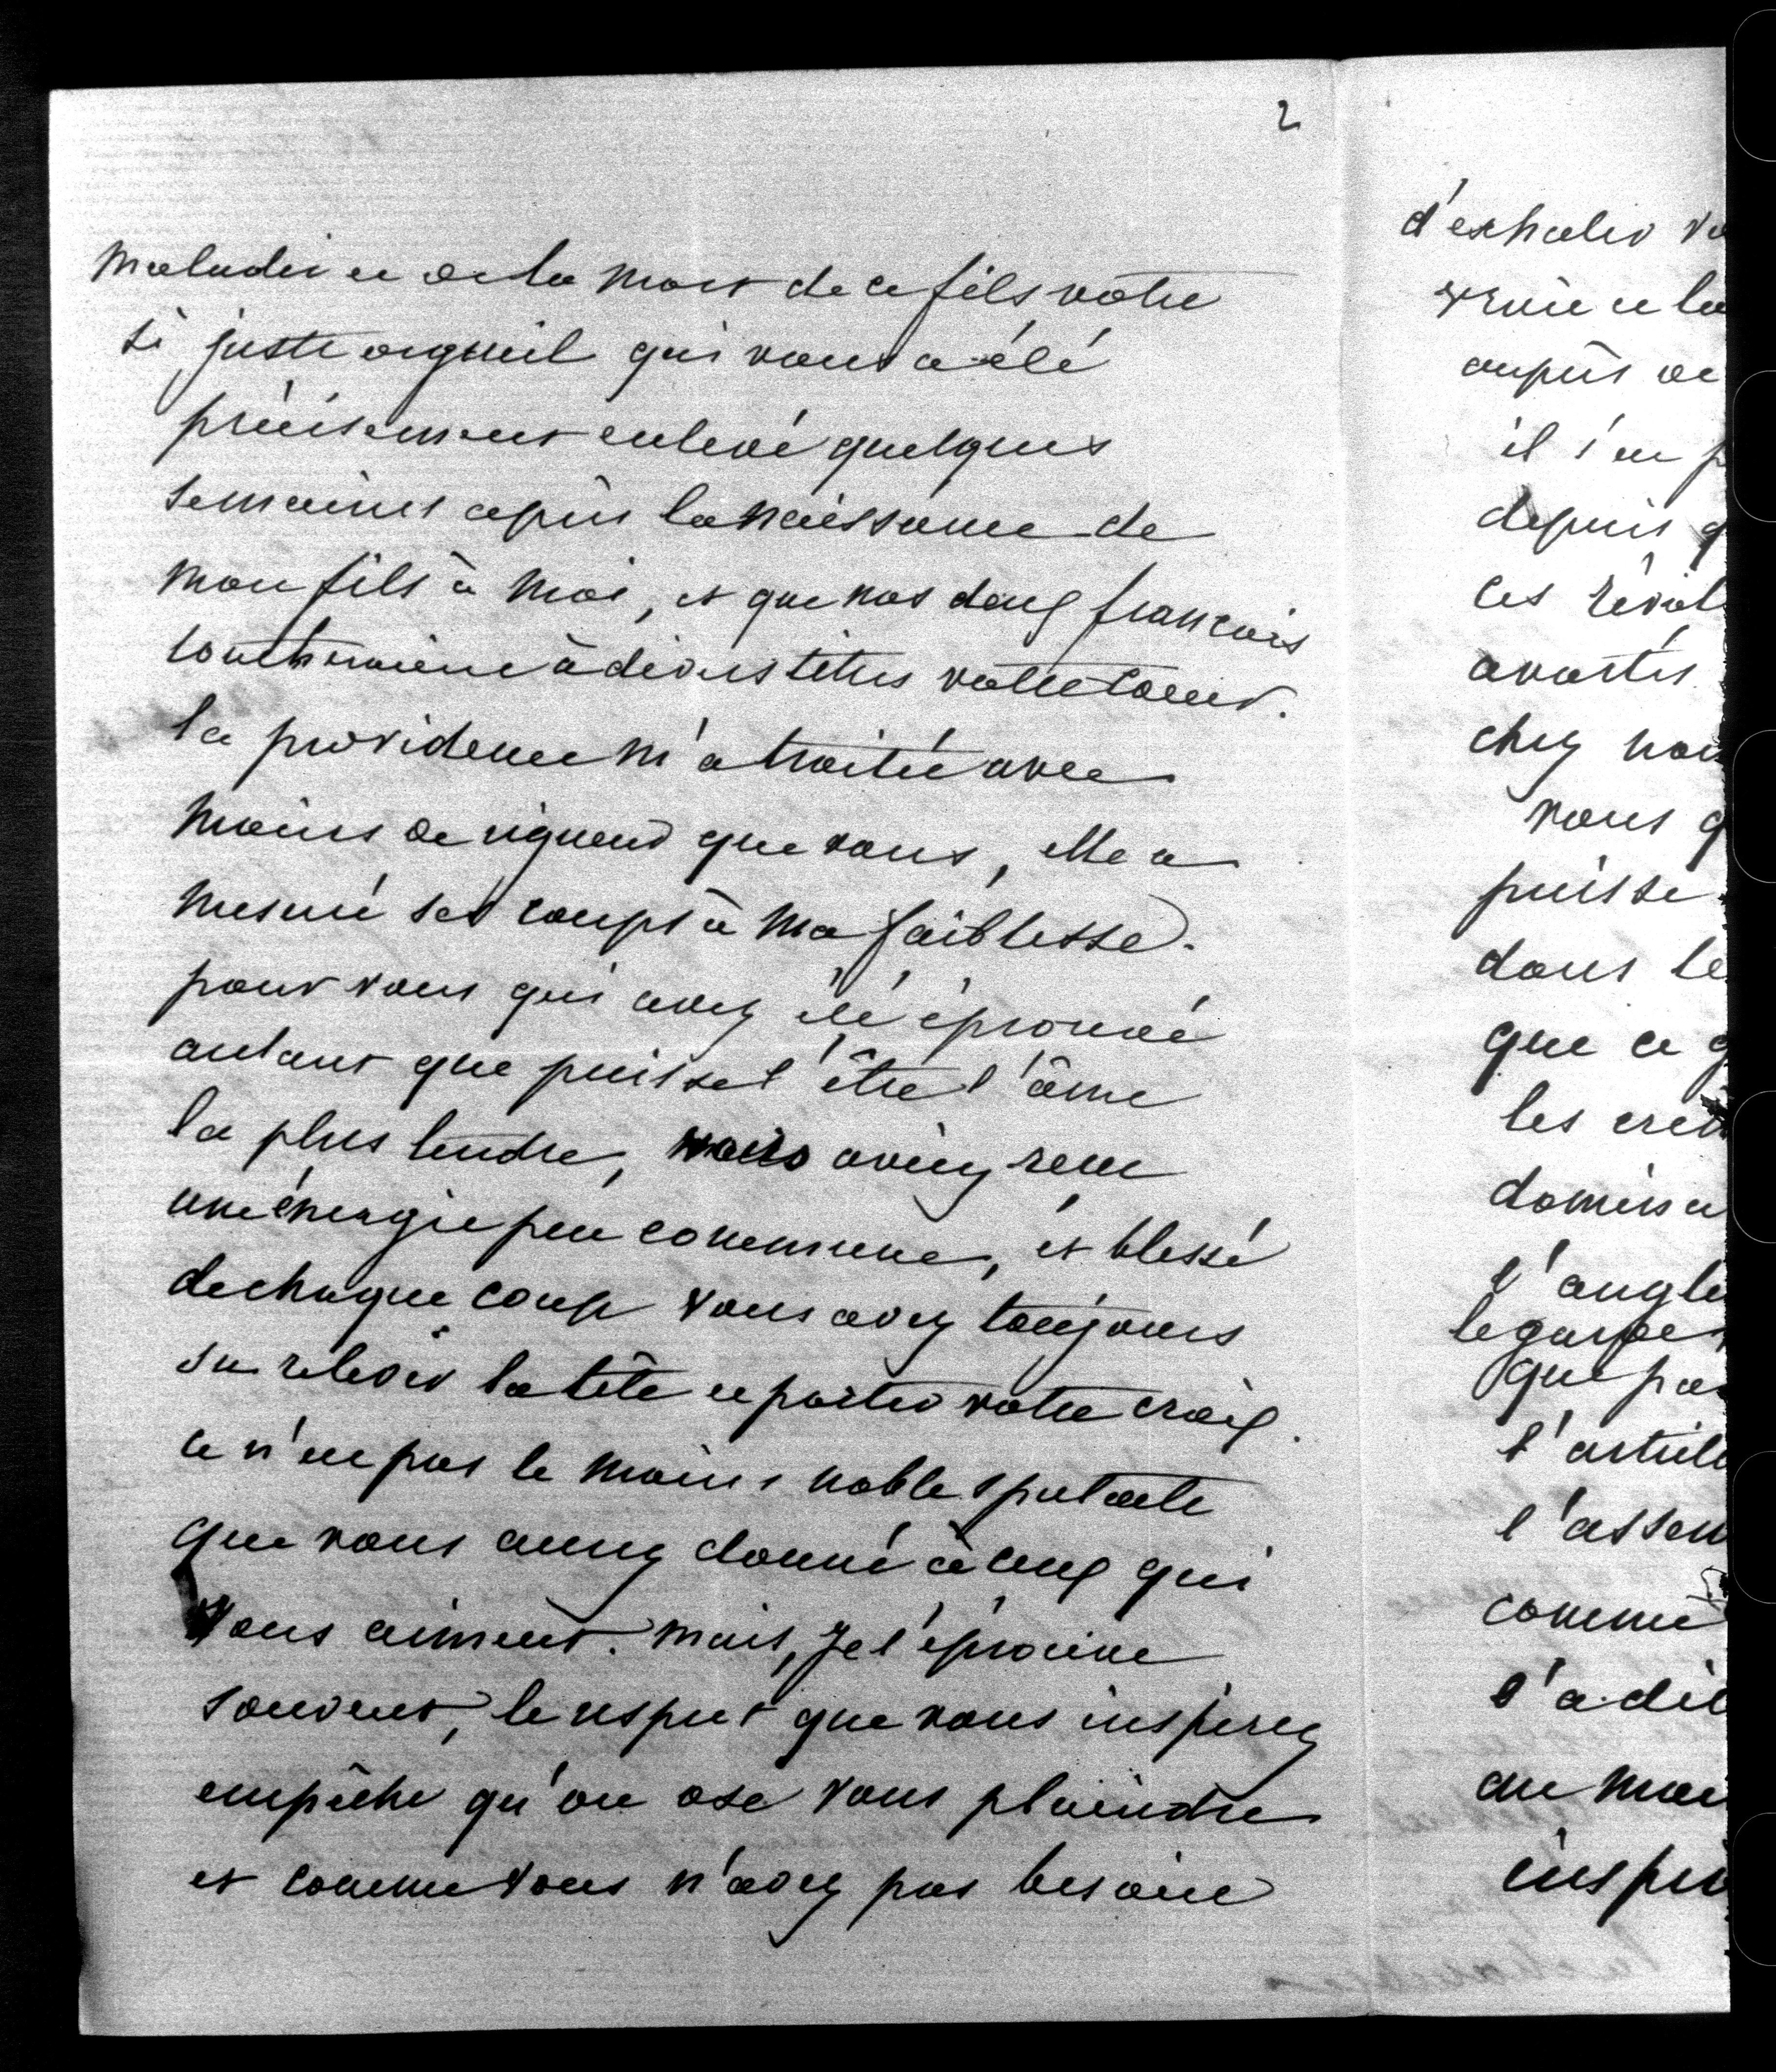 2
maladie et de la mort de ce fils, votre
si juste orgueil qui vous a été
précisement enlevé quelques
semaines après la naissance de
mon fils à moi, et que nos deux françois
touchaient à divers titres votre coeur.
la providence m'a traitée avec
moins de rigueur que vous, elle a
mesuré ses coups à ma faiblesse.
pour vous qui avez été éprouvé
autant que puisse l'être l'âme
la plus tendre, vous aviez reçu
une énergie peu commune, et blessé
de chaque coup vous avez toujours
su relever la tête et porter votre croix.
ce n'est pas le moins noble spectacle
que vous aurez donné à ceux qui
vous aiment. mais, je l'éprouve
souvent, le respect que vous inspirez
empêche qu'on ose vous plaindre
et comme vous n'avez pas besoin
d'exhaler vo
vraie et la
auprès de
il s'en p
depuis q
ces
avortés
chez nou
vous q
puisse
dans le
que ce g
les
domina
l'angle
que pa
l'article
l'assem
comme
l'a dit
au moi
inspi